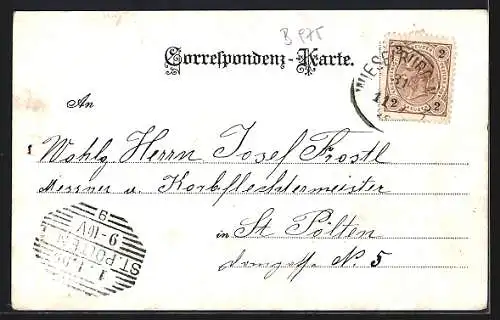 B 975
Correspondenz-Karte.
2 2
2 2
An
Wohlg Herrn Josef Frostl
Messner u. Korbflechtermeister
in St Pölten
domgasse No. 5
ST. PÖLTEN
9-10V
B